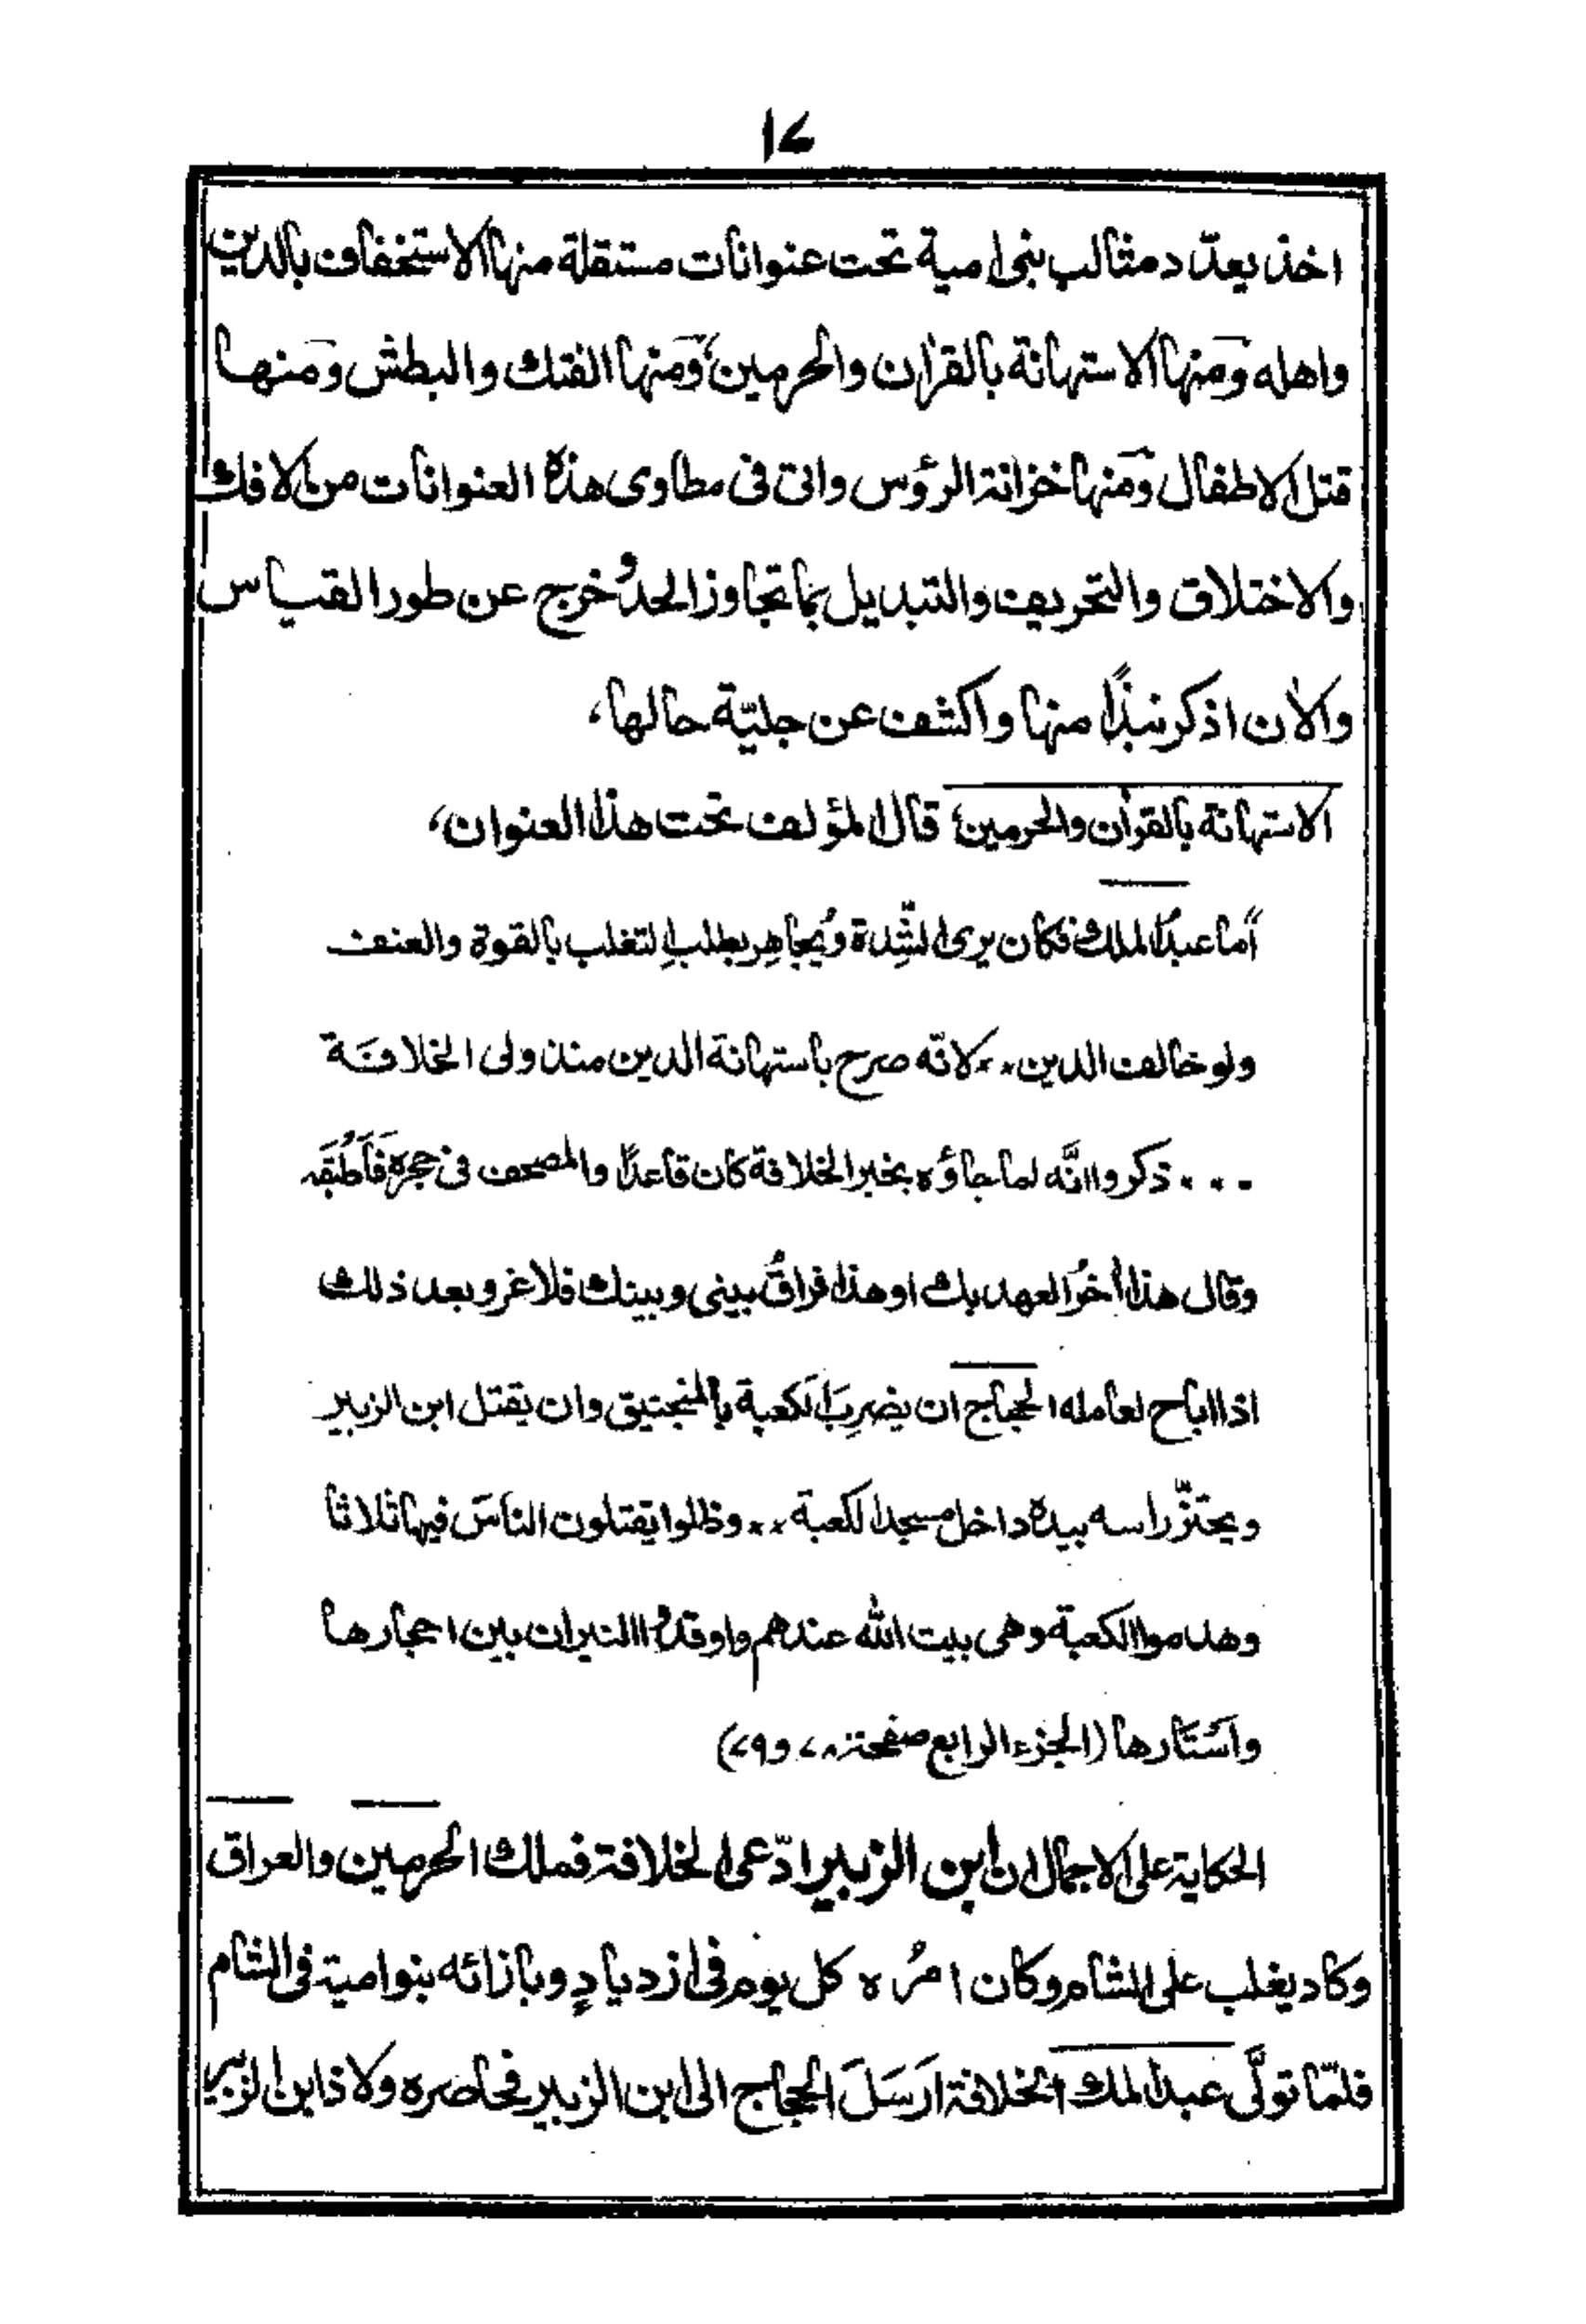 ١٤
اخذ يعدّد مثالب بنى امية تحت عنوانات مستقلة منها الاستخفاف بالدين
واهله ومنها الاستهانة بالقرآن والحرمين، ومنها الفتك والبطش ومنها
قتل الاطفال ومنها خزانة الرؤس واتى فى مطاوى هذه العنوانات من الافك
والاختلاق والتحريف والتبديل بما تجاوز الحدّ وخرج عن طور القياس
والآن اذكر نبذًا منها واكشف عن جليّة حالها،
الاستهانة بالقرآن والحرمين، قال المؤلف تحت هذا العنوان،
أما عبدُ الملك فكان يرى الشِّدة ويُجاهِر بطلبِ التغلب بالقوة والعنف
ولو خالف الدين٠٠ لانّه صرح باستهانة الدين منذ ولى الخلافة
٠٠٠ ذكروا انَّه لما جاؤه بخبر الخلافة كان قاعدًا والمصحف فى حجره فَأَطبَقَه
وقال هذا أخرُ العهد بك او هذا فراقُ بينى وبينك فلا غرو بعد ذلك
اذا اباح لعامله الحجاج ان يضرِبَ الكعبة بالمنجنيق وان يقتل ابن الزبير
ويحتزّ راسه بيده داخل مسجد الكعبة ٠٠ وظلوا يقتلون الناسَ فيها ثلاثا
وهدموا الكعبة وهى بيت الله عندهم واوقدوا النيران بين احجارها
واستارها (الجزء الرابع صفحة ٧٨ و٧٩)
الحكاية على الاجمال ان ابن الزبير ادّعى الخلافة فملك الحرمين والعراق
وكاد يغلب على الشام وكان امرُه كل يوم فى ازديادٍ وبازائه بنو امية فى الشام
فلمّا تولَّى عبد الملك الخلافة ارسَلَ الحجاج الى ابن الزبير فحاصره ولاذ ابن الزبير